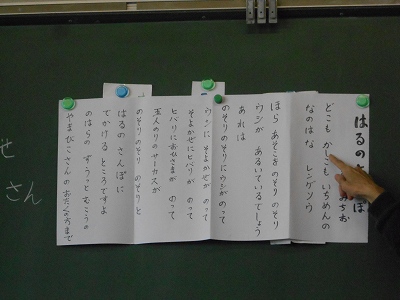 はるの さんぽ
みちお
どこも かしこも いちめんの
なのはな レンゲソウ
ほら あそこを のそり のそり
ウシが あるいているでしょう
あれは
のそりのそりにウシがのって
ウシに そよかぜが のって
そよかぜにヒバリが のって
ヒバリにおひさまが のって
五人のりのサーカスが
のそりのそり のそりと
はるの さんぽに
でかける ところですよ
のはらの ずうっと むこうの
やまびこさんの おたくの方まで
せ
さん